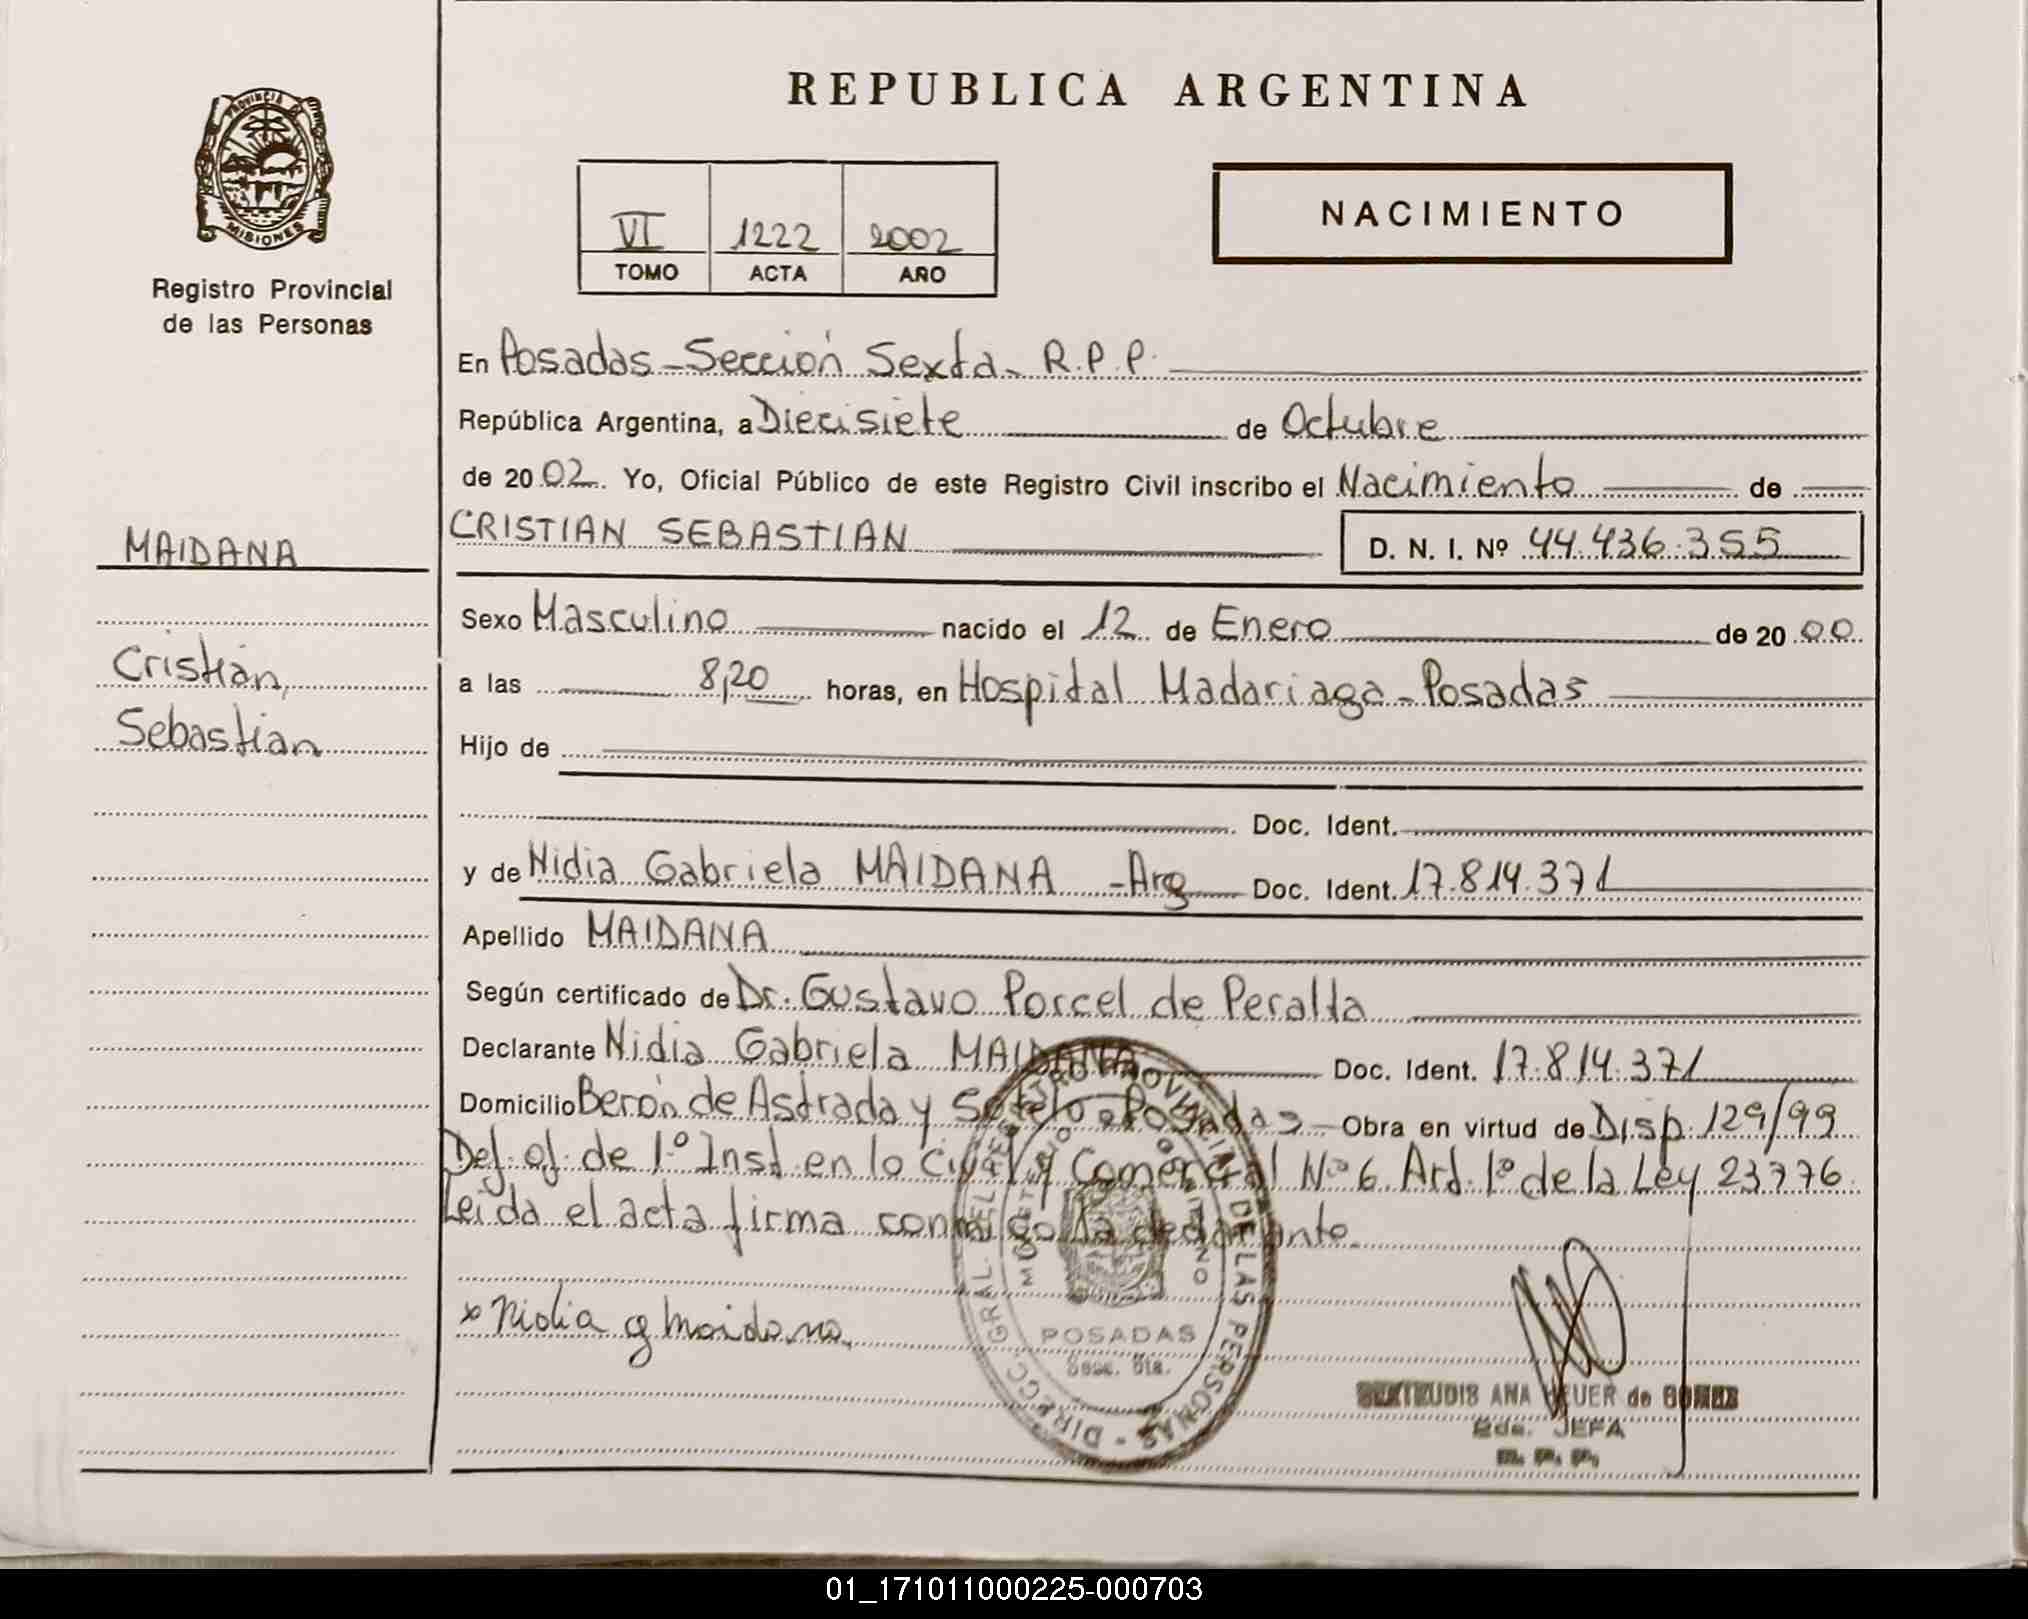 REPUBLICA ARGENTINA
PROVINCIA DE
MISIONES
Registro Provincial
de las Personas
VI 1222 2002
TOMO ACTA AÑO
NACIMIENTO
En Posadas - Sección Sexta - R.P.P.
República Argentina, a Diecisiete de Octubre
de 2002. Yo, Oficial Público de este Registro Civil inscribo el Nacimiento de
CRISTIAN SEBASTIAN D. N. I. Nº 44.436.355
MAIDANA
Cristian,
Sebastian
Sexo Masculino nacido el 12 de Enero de 2000
a las 8,20 horas, en Hospital Madariaga - Posadas
Hijo de
Doc. Ident.
y de Nidia Gabriela MAIDANA - Arg Doc. Ident. 17.814.371
Apellido MAIDANA
Según certificado de Dr. Gustavo Porcel de Peralta
Declarante Nidia Gabriela MAIDANA Doc. Ident. 17.814.371
Domicilio Berón de Astrada y Sotelo - Posadas - Obra en virtud de Disp. 129/99
Def. of. de 1º Inst. en lo Civil y Comercial Nº 6. Art. 1º de la Ley 23776.
Leída el acta firma conmigo la declarante.
x Nidia g Maidana.
DIRECC. GRAL. DEL REGISTRO PROVINCIAL DE LAS PERSONAS
MINISTERIO DE GOBIERNO
POSADAS
Secc. 6ta.
GERTRUDIS ANA HEUER de GOMEZ
2da. JEFA
R. P. P.
01_171011000225-000703